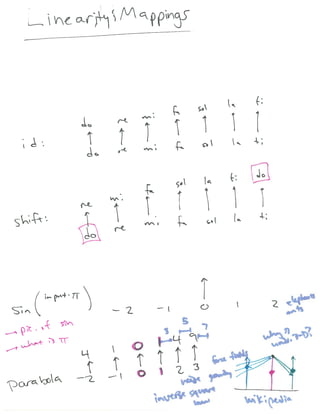 Linearity & Mappings
do re mi fa sol la ti
id:
do re mi fa sol la ti
re mi fa sol la ti do
shift:
do re mi fa sol la ti
sin (input·π) -2 -1 0 1 2
→ pic. of sin
→ what is π
4 1 0 1 4 9
3 5 7
parabola -2 -1 0 1 2 3
force fields
inverse square law
wikipedia